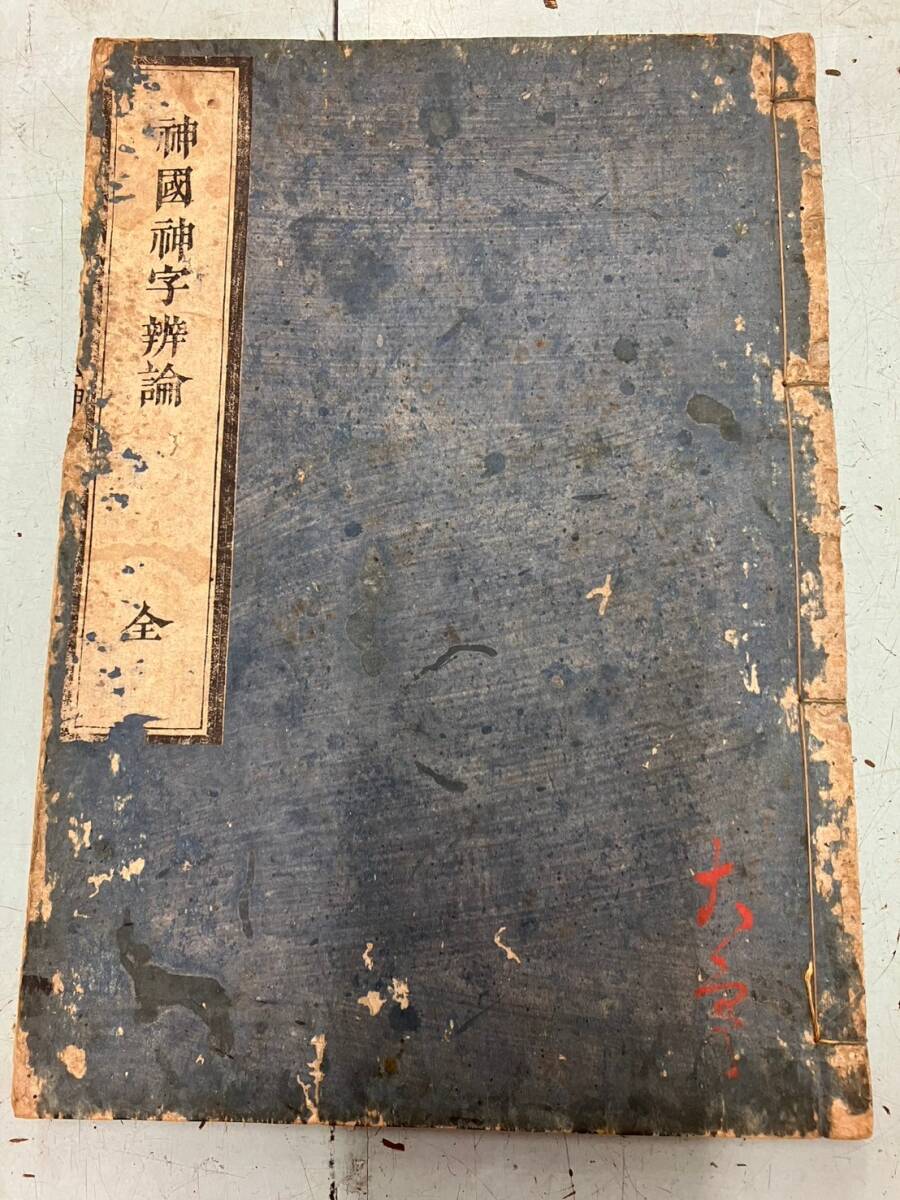 神國神字辨論
全